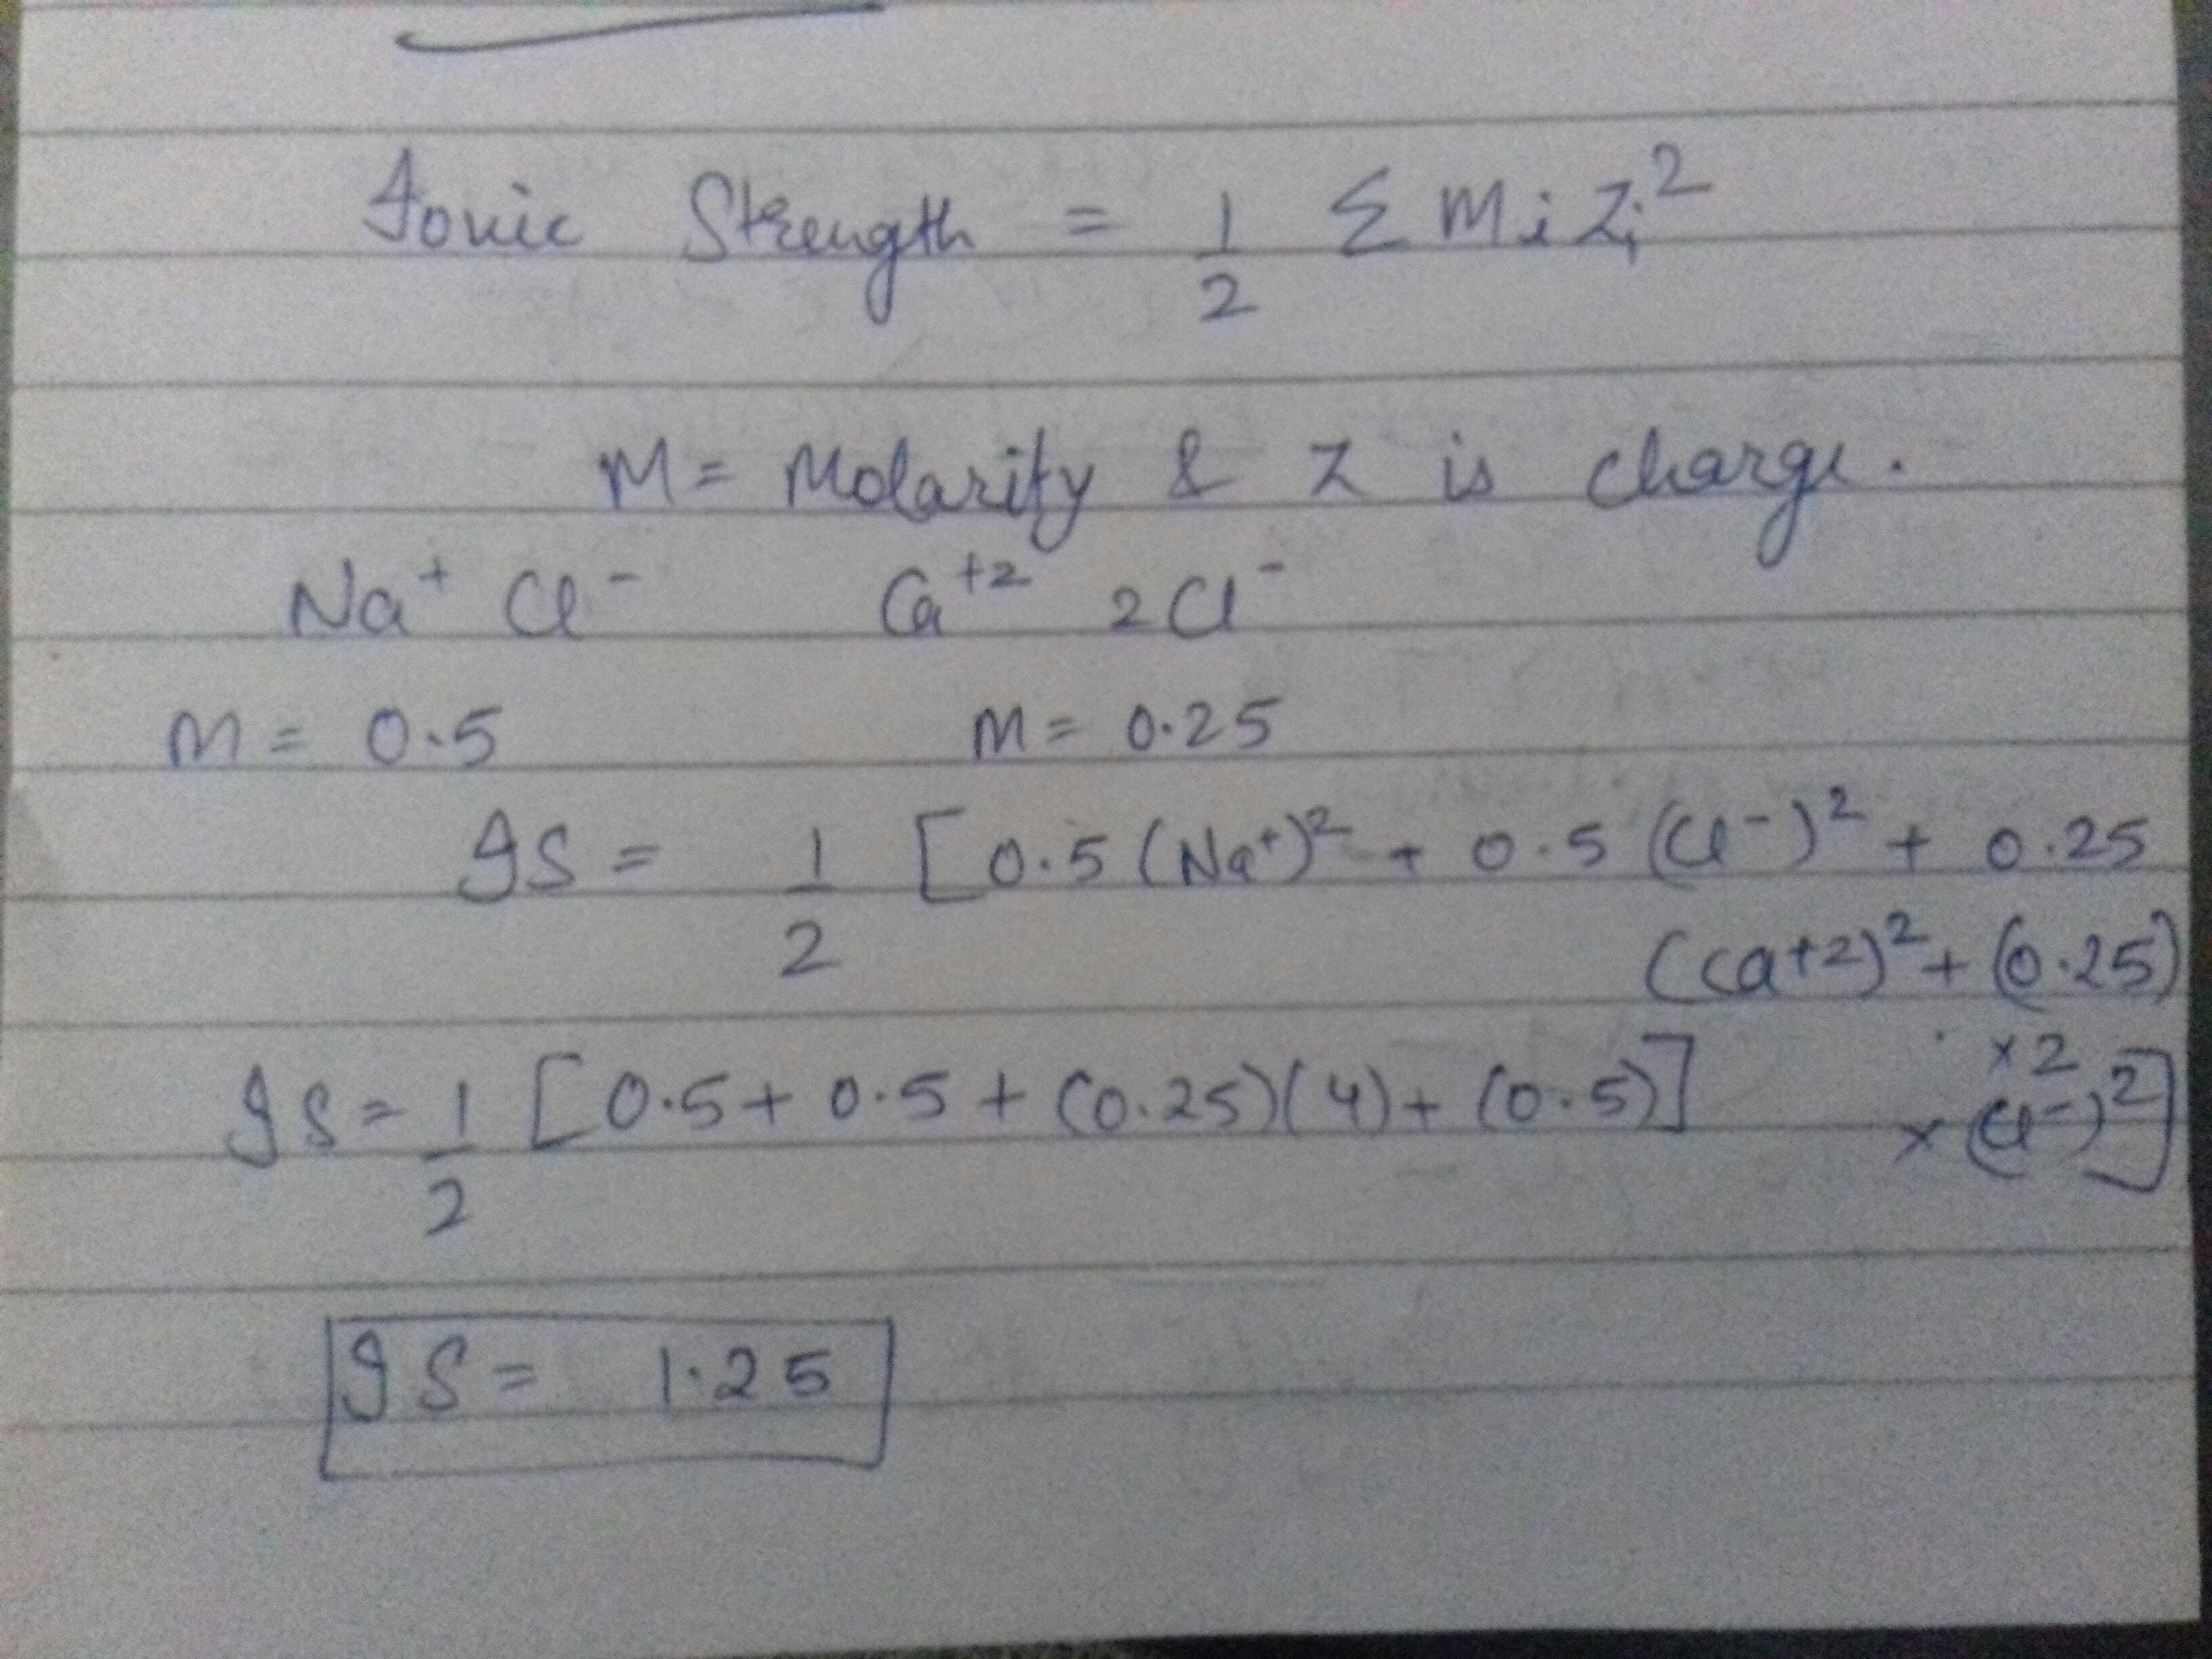 Ionic Strength = 1/2 Σ Mi Zi²
M = Molarity & Z is charge.
Na⁺ Cl⁻ Ca⁺² 2Cl⁻
M = 0.5 M = 0.25
IS = 1/2 [0.5 (Na⁺)² + 0.5 (Cl⁻)² + 0.25
(Ca+2)² + (0.25)
×2
× (Cl⁻)²]
IS = 1/2 [0.5 + 0.5 + (0.25)(4) + (0.5)]
IS = 1.25